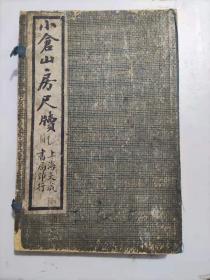 小倉山房尺牘
上海天成
書局印行